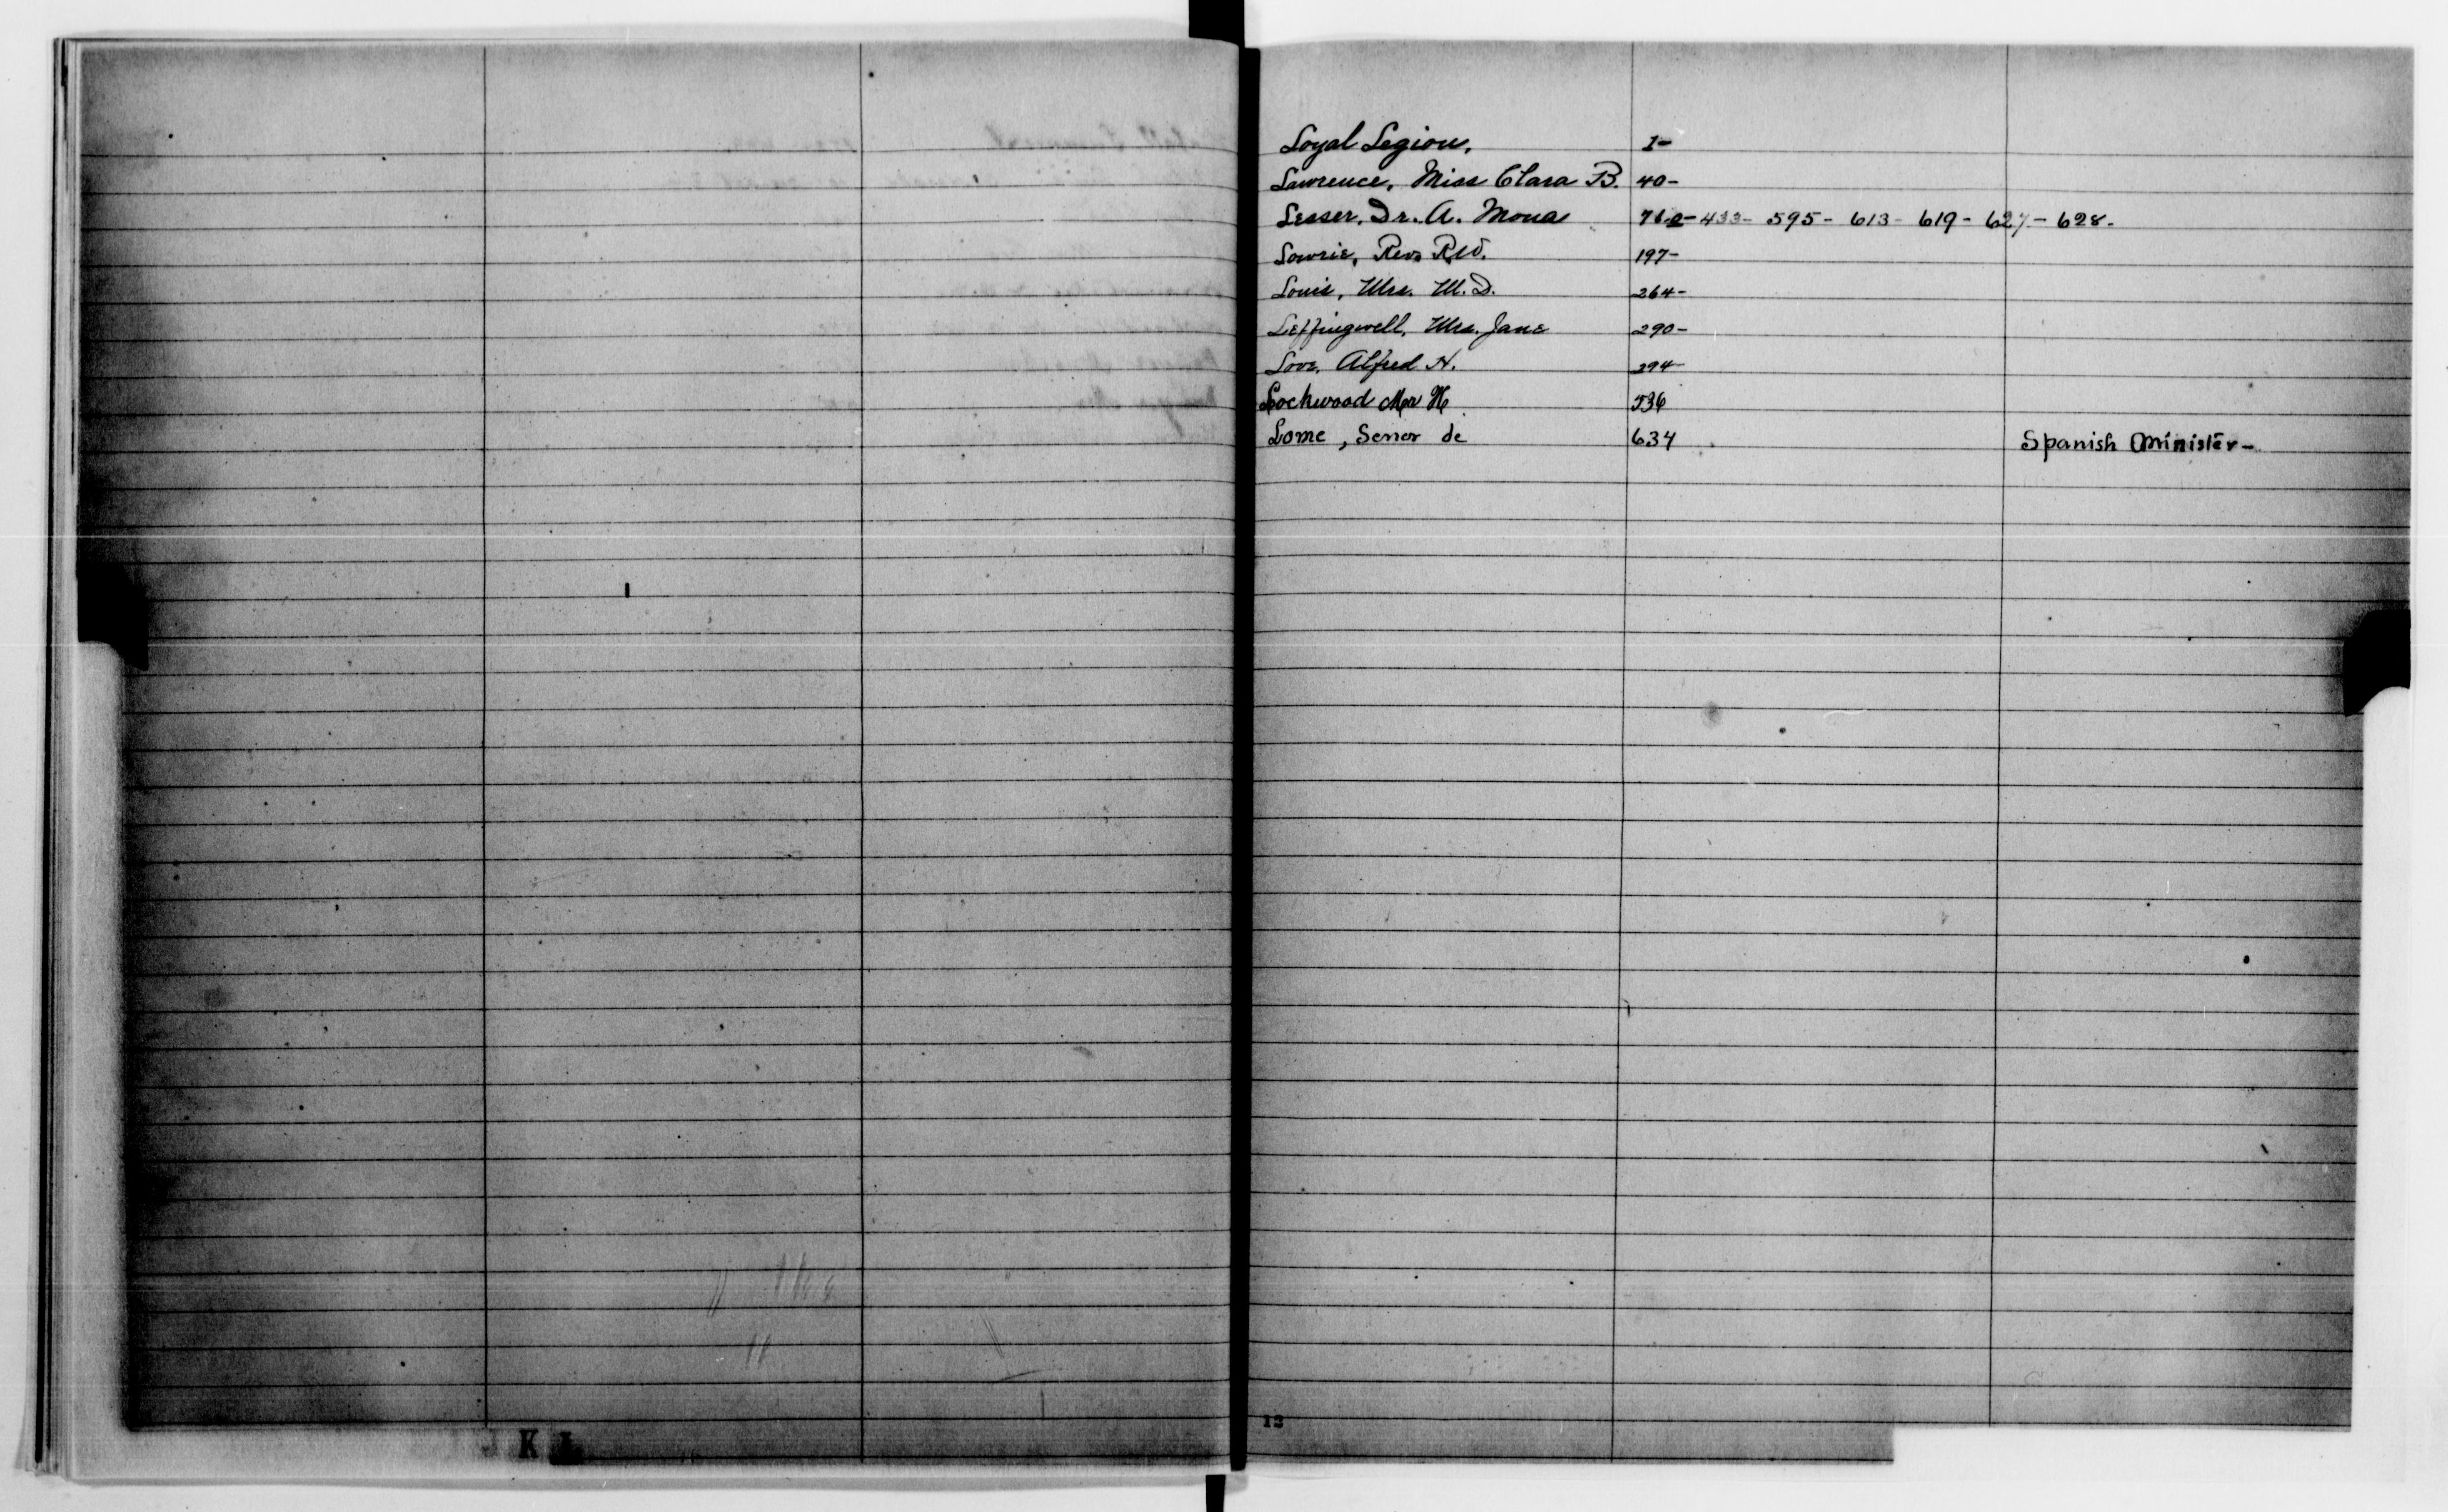 Loyal Legion, 1-
Lawrence, Miss Clara B. 40-
Lesser, Dr. A. Monae 433- 595- 613- 619- 627- 628-
Lowrie, Rev. R.W. 197-
Louis, Mrs. M. D. 264-
Leffingwell, Mrs. Jane 290-
Love, Alfred H. 294-
Lockwood Mr H 536
Lome, Senor de 634 Spanish Minister-
12
K L